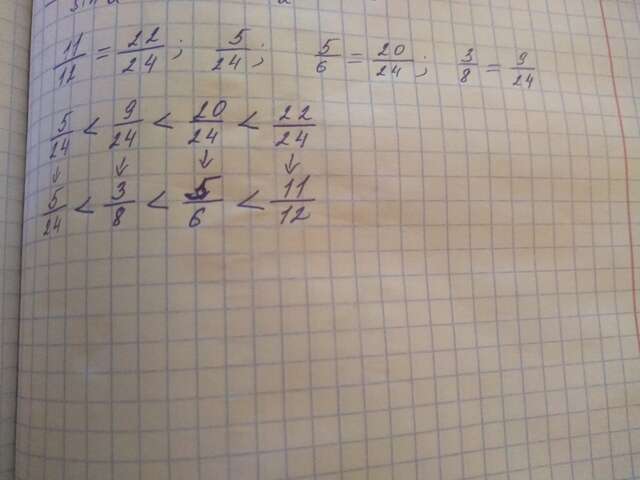 11/12 = 22/24; 5/24; 5/6 = 20/24; 3/8 = 9/24
5/24 < 9/24 < 20/24 < 22/24
↓ ↓ ↓ ↓
5/24 < 3/8 < 5/6 < 11/12